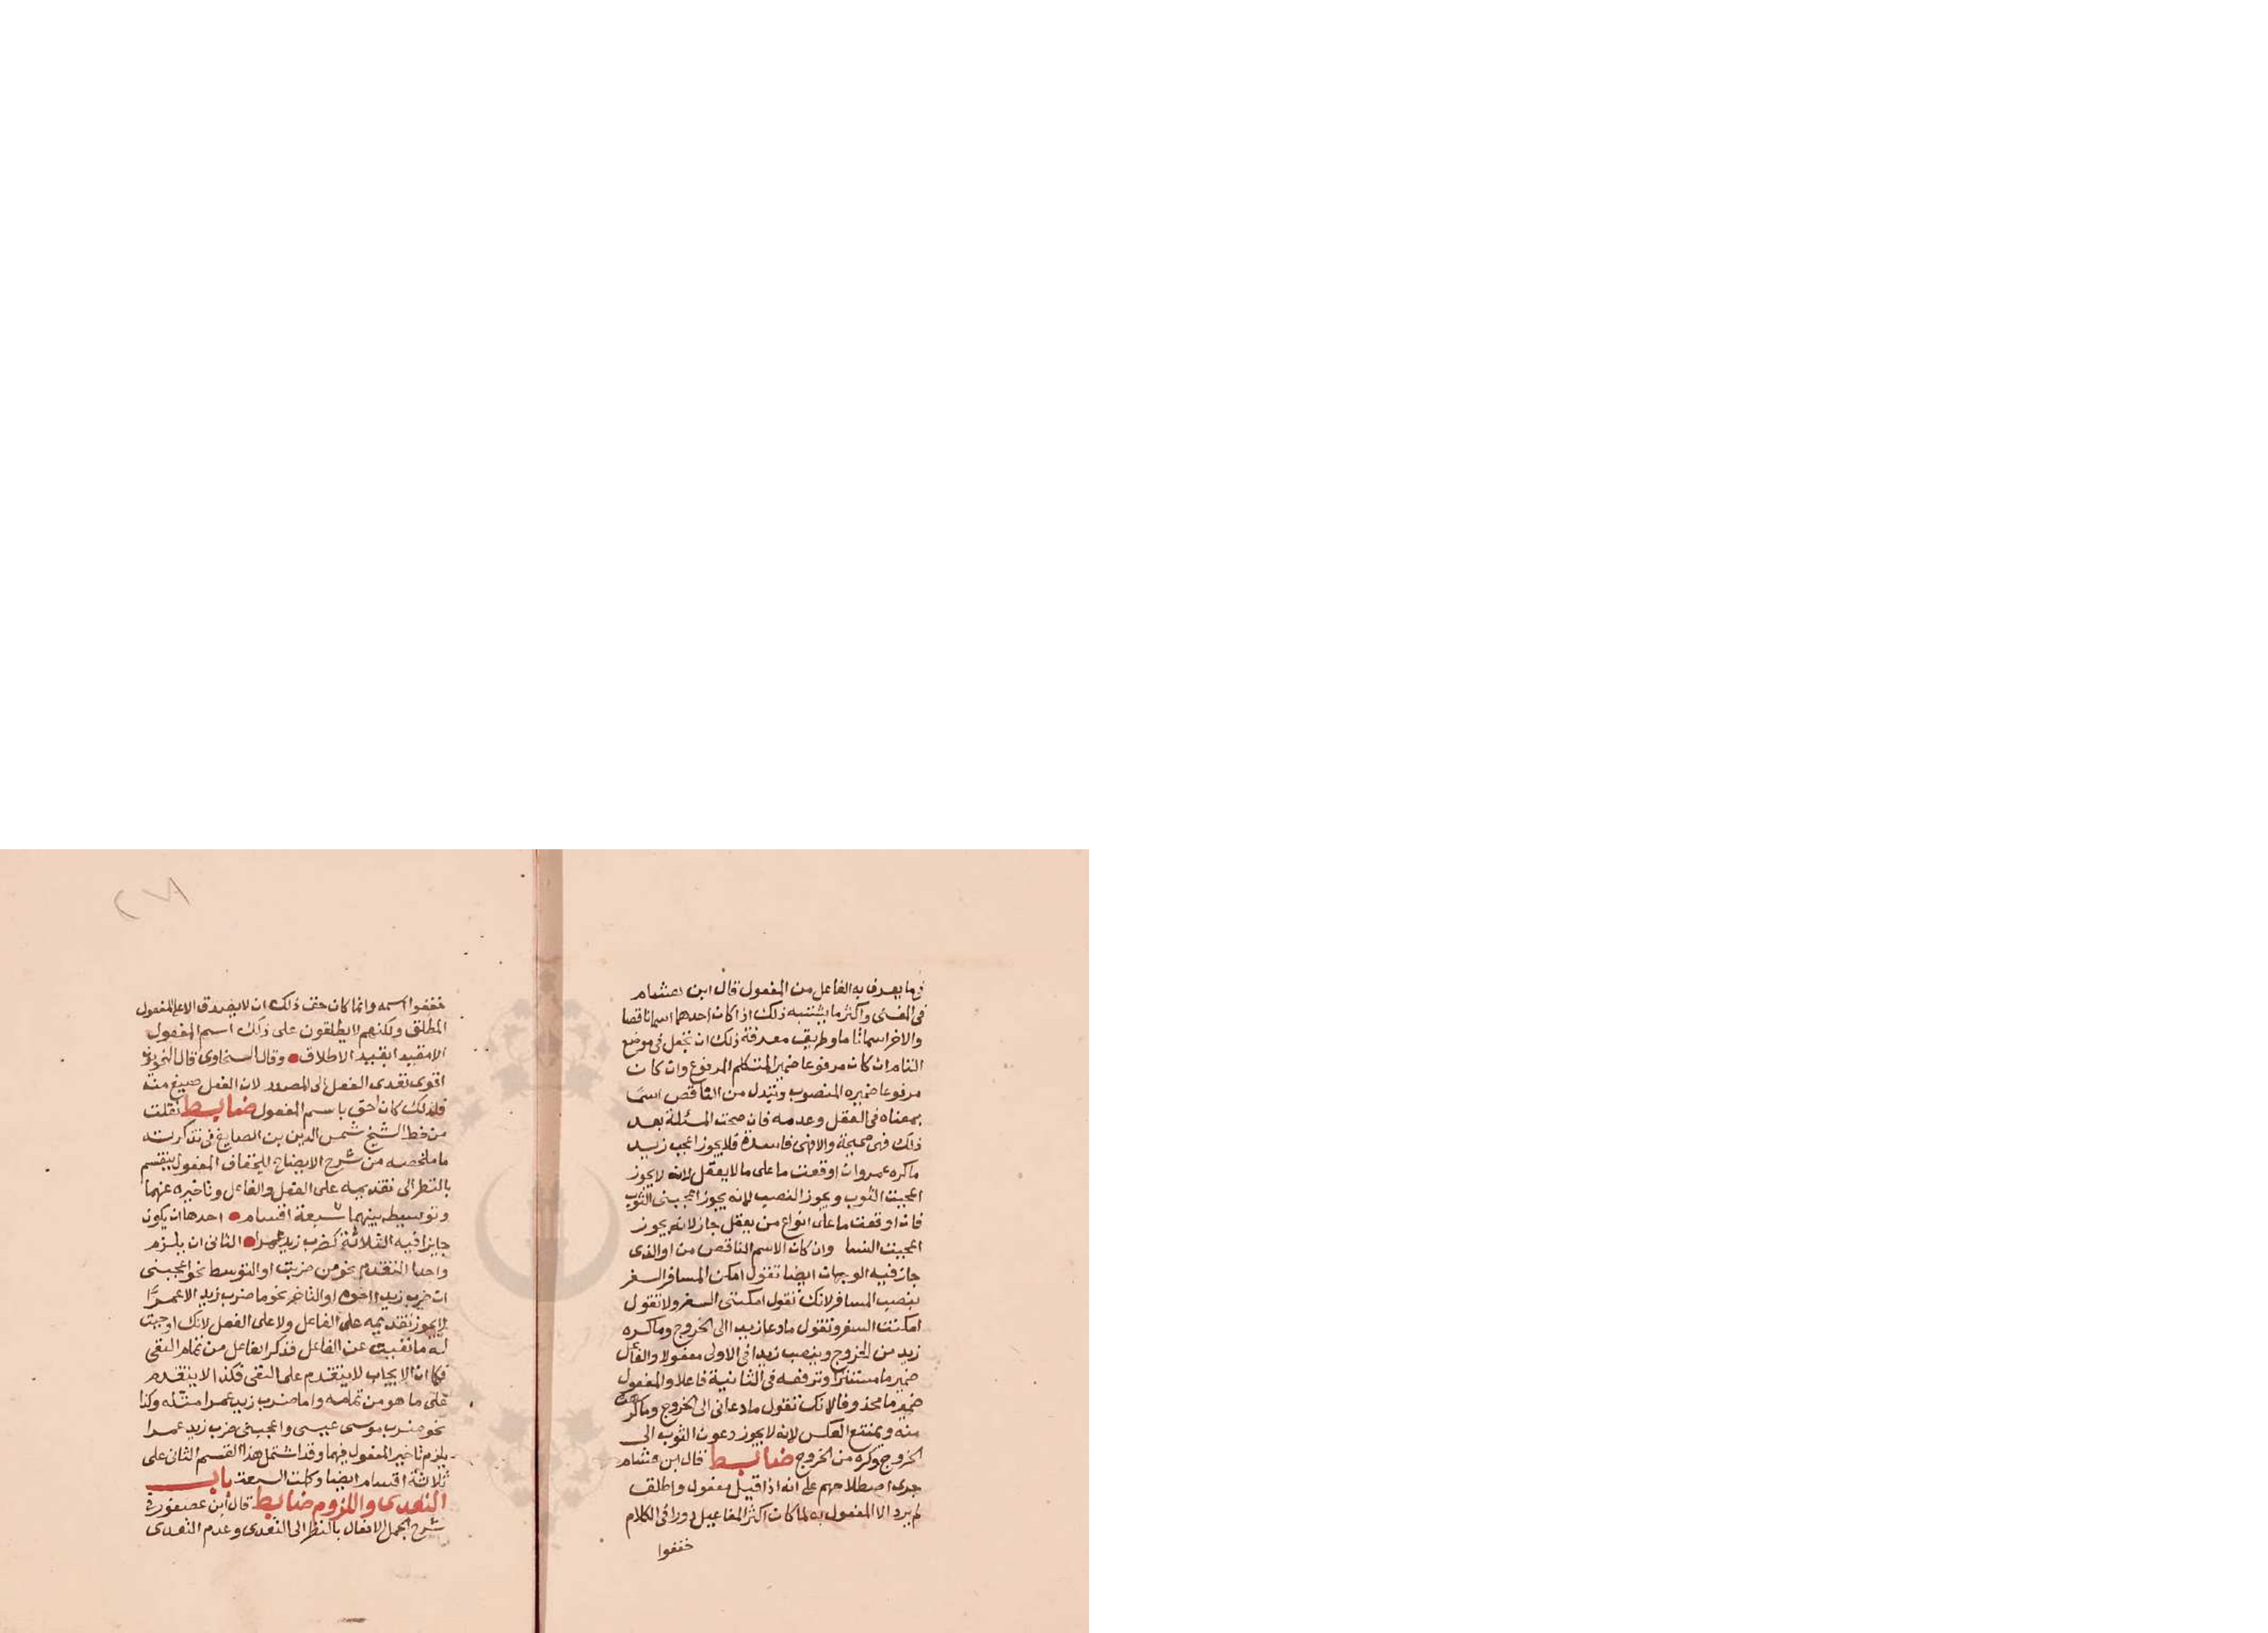 فيما يعرف به الفاعل من المفعول قال ابن هشام
في المغنى واكثر ما يشتبه ذلك اذا كان احدهما اسما ناقصا
والاخر اسما تاما وطريق معرفة ذلك ان تجعل في موضع
التام ان كان مرفوعا ضمير المتكلم المرفوع وان كان
مرفوعا ضميره المنصوب وتبدل من الناقص اسما
بمعناه في العقل وعدمه فان صحت المسئلة بعد
ذلك فهى صحيحة والا فهى فاسدة فلا يجوز اعجب زيد
ما كره عمرو ان اوقعت ما على ما لا يعقل لانه لا يجوز
اعجبت الثوب ويجوز النصب لانه يجوز اعجبنى الثوب
فان اوقعت ما على انواع من يعقل جاز لانه يجوز
اعجبت النسا وان كان الاسم الناقص من او الذى
جاز فيه الوجهان ايضا تقول امكن المسافر السفر
بنصب المسافر لانك تقول امكننى السفر ولا تقول
امكنت السفر وتقول ما دعا زيدا الى الخروج وما كره
زيد من الخروج وينصب زيدا فى الاولى مفعولا والفاعل
ضمير ما مستترا وترفعه فى الثانية فاعلا والمفعول
ضمير ما محذوفا لانك تقول ما دعانى الى الخروج وما كرهت
منه ويمتنع العكس لانه لا يجوز دعوت الثوب الى
الخروج وكره من الخروج ضابط قال ابن هشام
جرى اصطلاحهم على انه اذا قيل مفعول واطلق
لم يرد الا المفعول به لما كان اكثر المفاعيل دورا فى الكلام
خففوا
خففوا اسمه وانما كان حق ذلك ان لا يصدق الا على المفعول
المطلق ولكنهم لا يطلقون على ذلك اسم المفعول
الا مقيدا بقيد الاطلاق وقال السخاوى قال النحويون
اقوى تعدى الفعل الى المصدر لان الفعل صيغ منه
فلذلك كان احق باسم المفعول ضابط نقلت
من خط الشيخ شمس الدين بن الصايغ فى تذكرته
ما ملخصه من شرح الايضاح للخفاف المفعول ينقسم
بالنظر الى تقديمه على الفعل والفاعل وتاخيره عنهما
وتوسيطه بينهما سبعة اقسام احدها ان يكون
جايزا فيه الثلاثة كضرب زيد عمرا الثانى ان يلزم
واحدا التقدم نحو من ضربت او التوسط نحو اعجبنى
ان ضرب زيدا اخوه او التاخر نحو ما ضرب زيد الا عمرًا
لا يجوز تقديمه على الفاعل ولا على الفعل لانك اوجبت
له ما نفيت عن الفاعل فذكر الفاعل من تمام النفى
فكما ان الايجاب لا يتقدم على النفى فكذا لا يتقدم
على ما هو من تمامه واما ضرب زيد عمرا مثله وكذا
نحو ضرب موسى عيسى واعجبنى ضرب زيد عمرا
يلزم تاخير المفعول فيهما وقد اشتمل هذا القسم الثانى على
ثلاثة اقسام ايضا وكلت السبعة باب
التعدى واللزوم ضابط قال ابن عصفور فى
شرح الجمل الافعال بالنظر الى التعدى وعدم التعدى